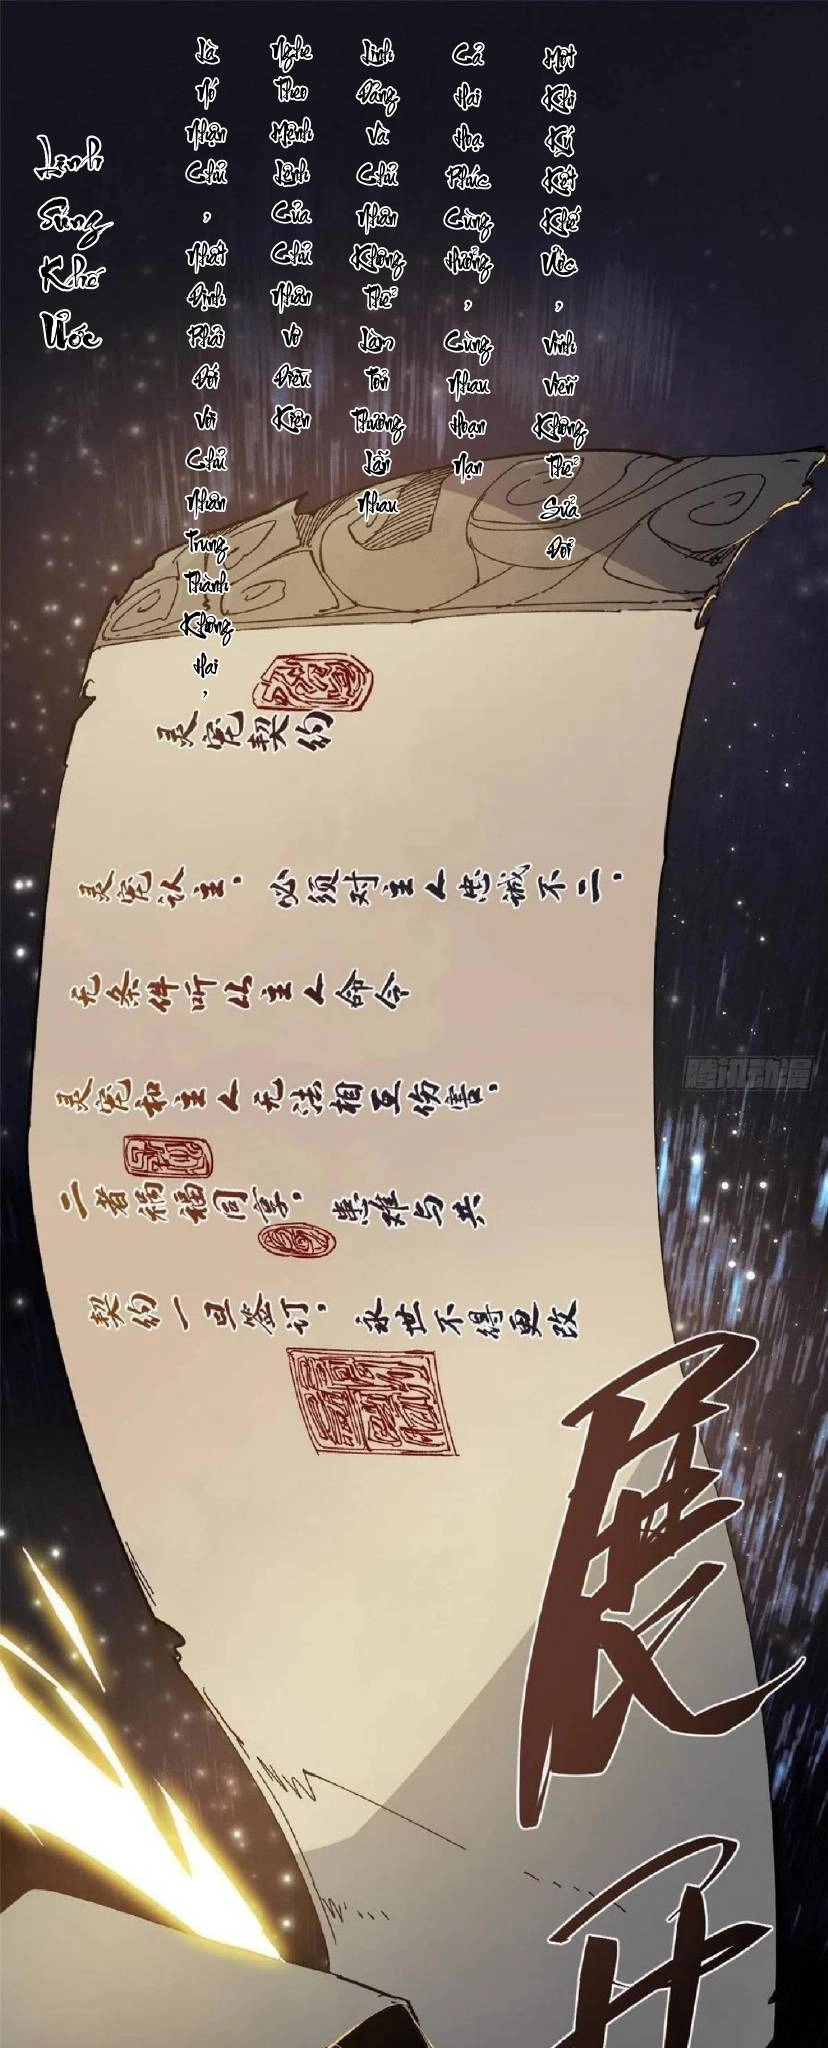 Linh Sủng Khế Ước
Là Nó Nhận Chủ, Nhất Định Phải Đối Với Chủ Nhân Trung Thành Không Hai,
Nghe Theo Mệnh Lệnh Của Chủ Nhân Vô Điều Kiện
Và Chủ Nhân Không Thể Làm Tổn Thương Lẫn Nhau
Cả Hai Hoạ Phúc Cùng Hưởng, Cùng Nhau Hoạn Nạn
Một Khi Kí Kết Khế Ước, Vĩnh Viễn Không Thể Sửa Đổi
灵宠契约
灵宠认主，必须对主人忠诚不二，
无条件听从主人命令
灵宠和主人无法相互伤害，
二者祸福同享，患难与共
契约一旦签订，永世不得更改
腾讯动漫
展
开